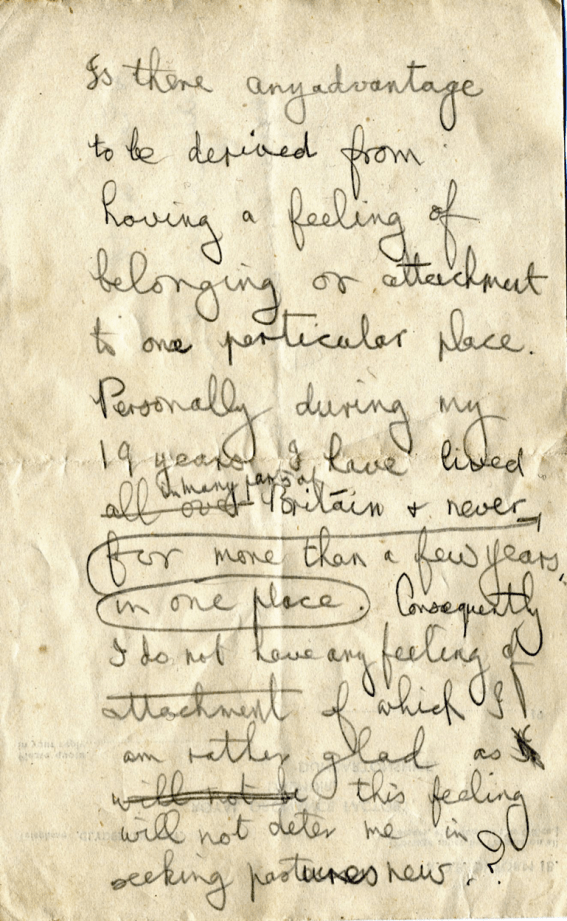 Is there any advantage
to be derived from
having a feeling of
belonging or attachment
to one particular place.
Personally during my
19 years I have lived
in many parts of
all over Britain & never
for more than a few years,
in one place. Consequently
I do not have any feeling of
attachment of which I
am rather glad as
will not be this feeling
will not deter me in
seeking pastures new.?